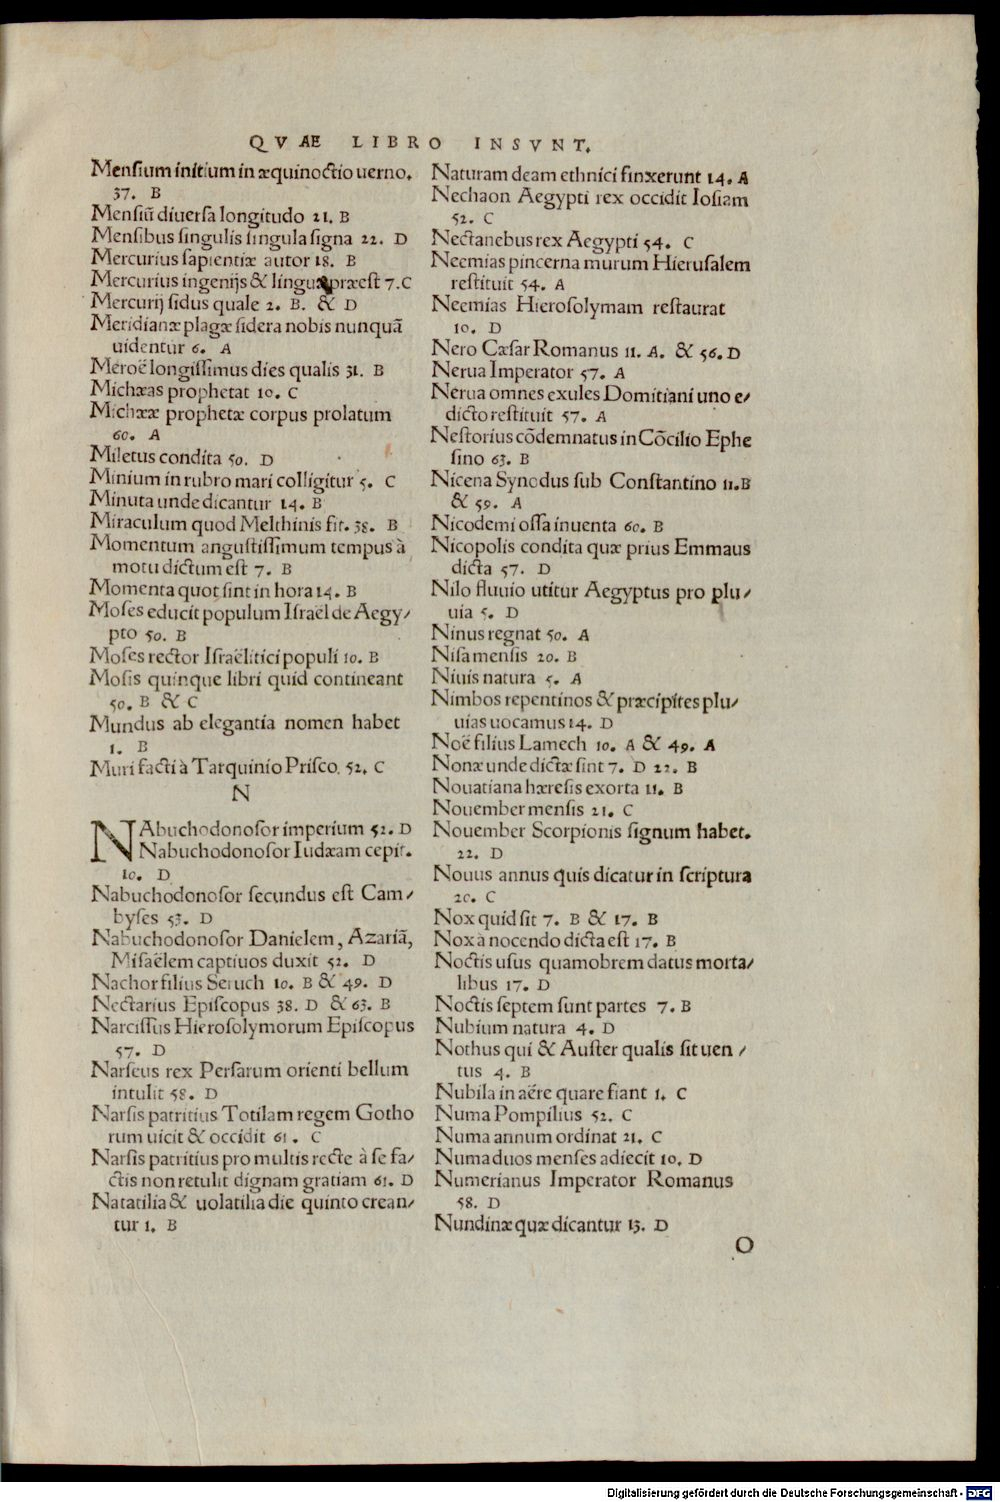 QVAE LIBRO INSVNT.
Mensium initium in æquinoctio uerno.
37. B
Mensiũ diuersa longitudo 21. B
Mensibus singulis singula signa 22. D
Mercurius sapientiæ autor 18. B
Mercurius ingenijs & linguæ præest 7. C
Mercurij sidus quale 2. B. & D
Meridianæ plagæ sidera nobis nunquã
uidentur 6. A
Meroë longissimus dies qualis 31. B
Michæas prophetat 10. C
Michææ prophetæ corpus prolatum
60. A
Miletus condita 50. D
Minium in rubro mari colligitur 5. C
Minuta unde dicantur 14. B
Miraculum quod Melthinis fit. 38. B
Momentum angustissimum tempus à
motu dictum est 7. B
Momenta quot sint in hora 14. B
Moses educit populum Israël de Aegy/
pto 50. B
Moses rector Israëlitici populi 10. B
Mosis quinque libri quid contineant
50. B & C
Mundus ab elegantia nomen habet
1. B
Muri facti à Tarquinio Prisco. 52. C
N
NAbuchodonosor imperium 52. D
Nabuchodonosor Iudæam cepit.
10. D
Nabuchodonosor secundus est Cam/
byses 53. D
Nabuchodonosor Danielem, Azariã,
Misaëlem captiuos duxit 52. D
Nachor filius Seruch 10. B & 49. D
Nectarius Episcopus 38. D & 63. B
Narcissus Hierosolymorum Episcopus
57. D
Narseus rex Persarum orienti bellum
intulit 58. D
Narsis patritius Totilam regem Gotho
rum uicit & occidit 61. C
Narsis patritius pro multis recte à se fa/
ctis non retulit dignam gratiam 61. D
Natatilia & uolatilia die quinto crean/
tur 1. B
Naturam deam ethnici finxerunt 14. A
Nechaon Aegypti rex occidit Iosiam
52. C
Nectanebus rex Aegypti 54. C
Neemias pincerna murum Hierusalem
restituit 54. A
Neemias Hierosolymam restaurat
10. D
Nero Cæsar Romanus 11. A. & 56. D
Nerua Imperator 57. A
Nerua omnes exules Domitiani uno e/
dicto restituit 57. A
Nestorius cõdemnatus in Cõcilio Ephe
sino 63. B
Nicena Synodus sub Constantino 11. B
& 59. A
Nicodemi ossa inuenta 60. B
Nicopolis condita quæ prius Emmaus
dicta 57. D
Nilo fluuio utitur Aegyptus pro plu/
uia 5. D
Ninus regnat 50. A
Nisa mensis 20. B
Niuis natura 5. A
Nimbos repentinos & præcipites plu/
uias uocamus 14. D
Noë filius Lamech 10. A & 49. A
Nonæ unde dictæ sint 7. D 22. B
Nouatiana hæresis exorta 11. B
Nouember mensis 21. C
Nouember Scorpionis signum habet.
22. D
Nouus annus quis dicatur in scriptura
20. C
Nox quid sit 7. B & 17. B
Nox à nocendo dicta est 17. B
Noctis usus quamobrem datus morta/
libus 17. D
Noctis septem sunt partes 7. B
Nubium natura 4. D
Nothus qui & Auster qualis sit uen/
tus 4. B
Nubila in aëre quare fiant 1. C
Numa Pompilius 52. C
Numa annum ordinat 21. C
Numa duos menses adiecit 10. D
Numerianus Imperator Romanus
58. D
Nundinæ quæ dicantur 13. D
O
Digitalisierung gefördert durch die Deutsche Forschungsgemeinschaft - DFG